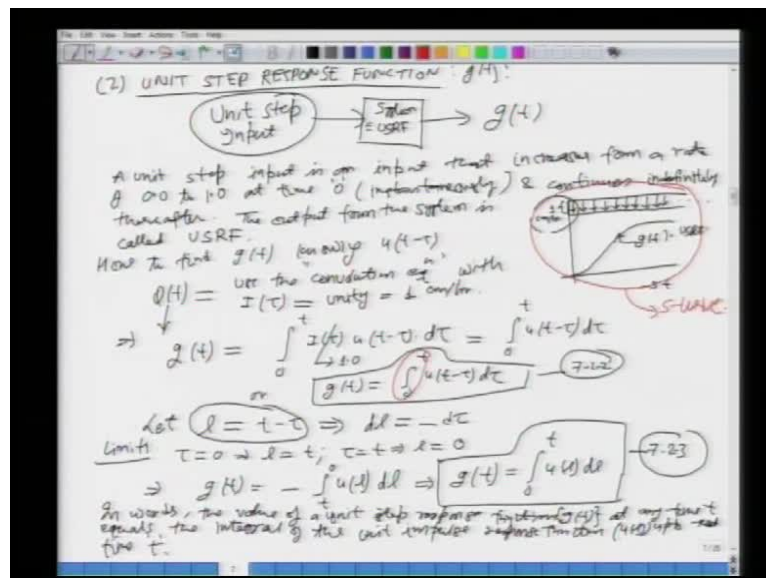 File Edit View Insert Actions Tools Help
(2) UNIT STEP RESPONSE FUNCTION : g(t):
Unit step Input
System ≡ USRF
g(t)
A unit step input is an input that increases from a rate
of 0.0 to 1.0 at time '0' (instantaneously) & continues indefinitely
thereafter. The output from the system is
called USRF.
g(t) = USRF
S-curve
How to find g(t) knowing u(t-τ)
Q(t) = use the convolution eqn with
I(τ) = unity = 1 cm/hr.
⇒ g(t) = ∫₀ᵗ I(τ) u(t-τ) dτ = ∫₀ᵗ u(t-τ) dτ
1.0
or g(t) = ∫₀ᵗ u(t-τ) dτ
7.22
Let l = t-τ ⇒ dl = -dτ
Limits τ=0 ⇒ l=t; τ=t ⇒ l=0
⇒ g(t) = - ∫ₜ⁰ u(l) dl ⇒ g(t) = ∫₀ᵗ u(l) dl
7.23
In words, the value of a unit step response function {g(t)} at any time t
equals the integral of the unit impulse response function upto
time t.